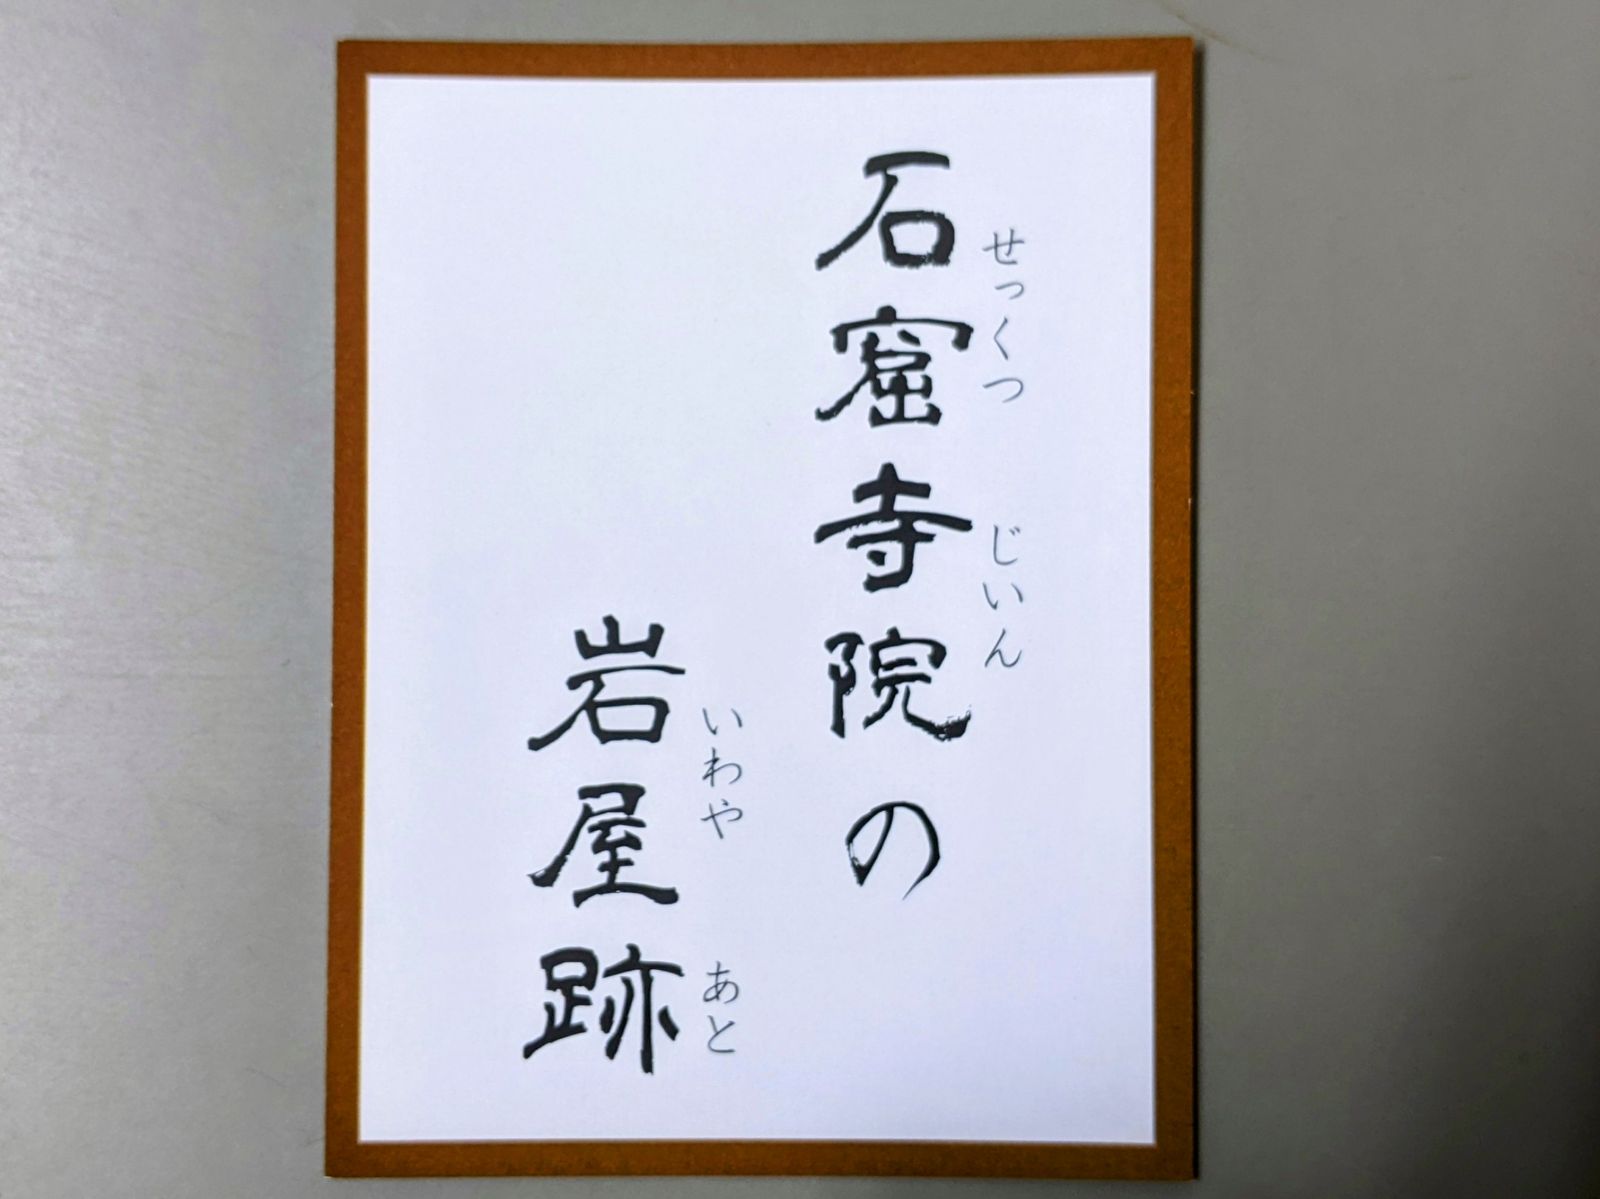 石窟寺院の
せっくつ じいん
岩屋跡
いわや あと